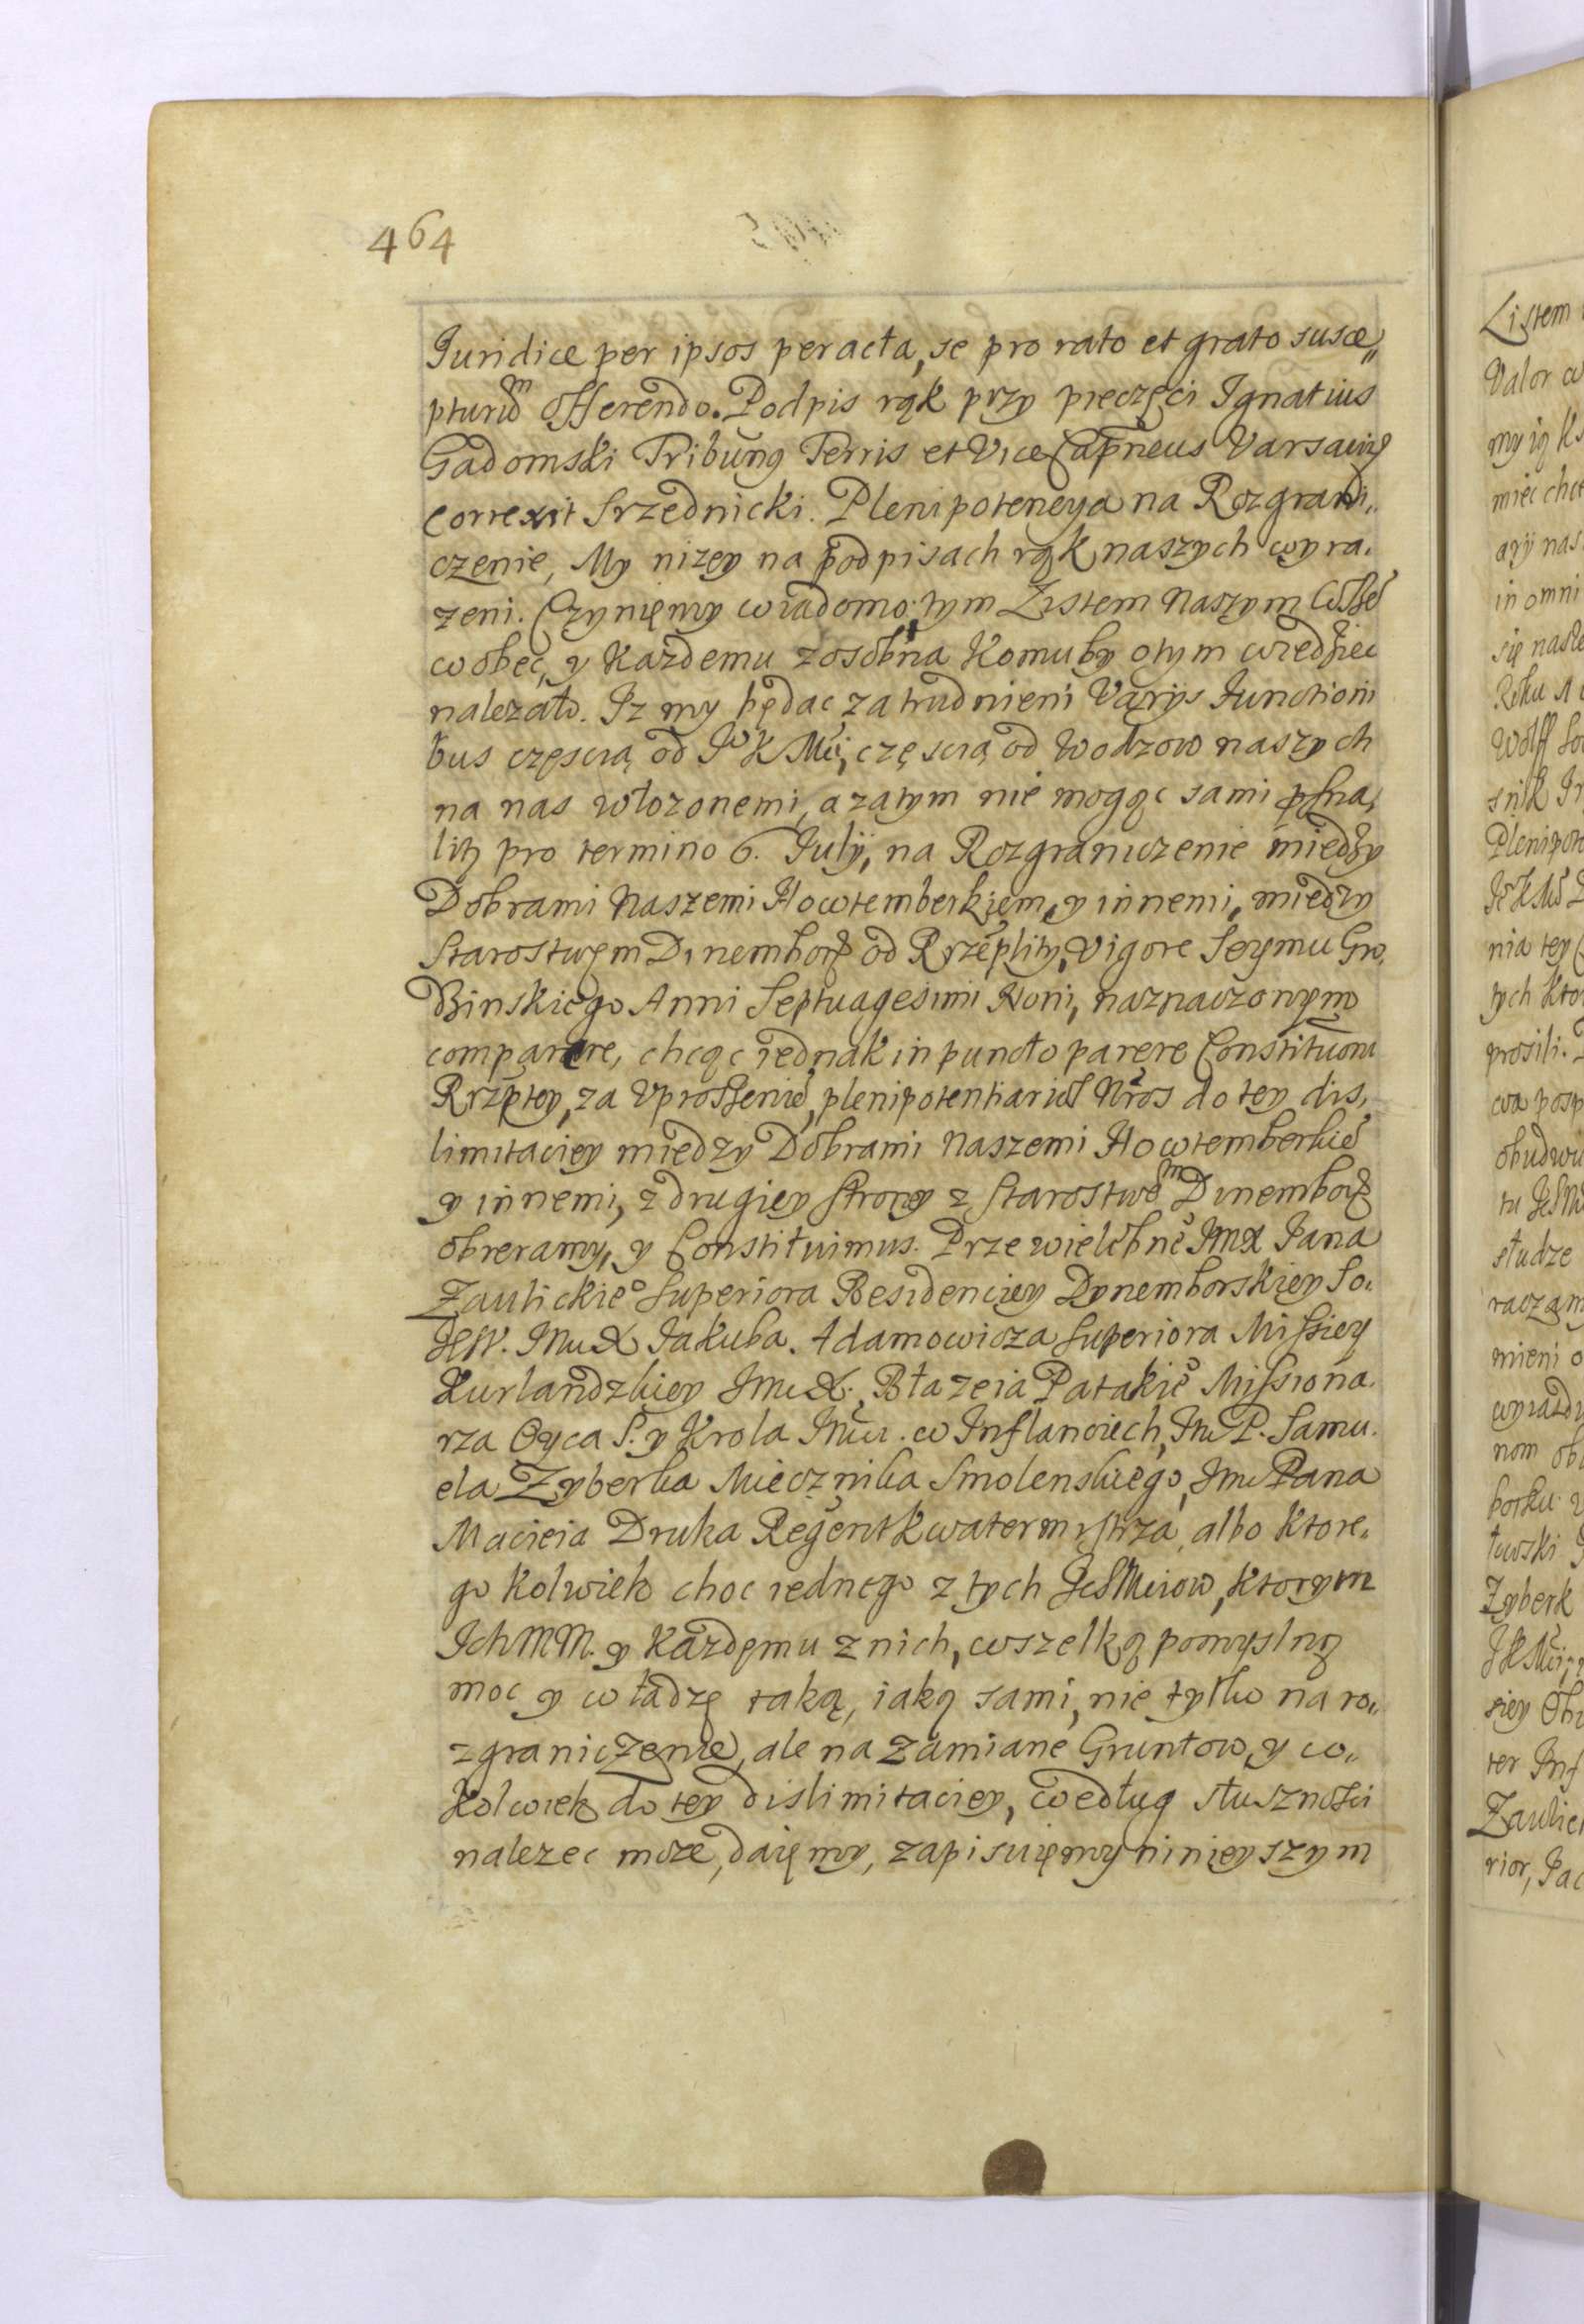 464
Juridice per ipsos peracta, se pro rato et grato susce„
pturũ offerendo. Podpis rąk przy pieczęci Ignatius
Gadomski Tribunꝰ Terris et Vice Capneus Varsavię
Correxit Srzednicki. Plenipotencya na Rozgrani„
czenie, My nizey na podpisach rąk naszych wyra.
zeni. Czynięmy wiadomo, tym Listem Naszym
wobec, y Kazdemu zosobna Komuby otym wiedziec
nalezało. Iz my będac zatrudnieni Varÿs Functioni
bus częscią od JoKMći, częscią od Wodzow naszych
na nas włozonemi, a zatym nie mogąc sami
litz pro termino 6. Julÿ, na Rozgraniczenie między
Dobrami Naszemi Howtemberkięm, y innemi, między
Starostwęm Dinemborz od Rrzeplity, Vigore Seymu Gro,
Dzinskiego Anni Septuagesimi Noni, naznaczonym
comparere, chcąc iednak in puncto parere Constitutioni
Rrzeptey, za Vprosszenie, plenipotentiarios Nros do tey dis,
limitaciey między Dobrami Naszemi Howtemberkie
y innemi, z drugiey strony z Starostwem Dinemborz
obieramy, y Constituimus. Przewielebne JmX Jana
Zaulickieo Superiora Residenciey Dynemborskiey So.
JESV. JmciX Jakuba Adamowicza Superiora Missiey
Kurlandzkiey JmciX. Błazeia Patakieo Missiona.
rza Oyca S. y Krola Jmci. w Inflanciech, Jm P. Samu.
ela Zyberka Miecznika Smolenskiego, Jmci Pana
Macieia Druka Regent Kwatermistrza, albo Ktore.
go kolwiek choc iednego z tych IchMciow, Ktorym
IchMM. y Kazdęmu z nich, wszelką pomyslną
moc y władzę taką, iaką sami, nie tylko na ro„
zgraniczenie, ale na zamiane Gruntow, y co„
Kolwiek do tey dislimitaciey, według słusznosci
nalezec moze, daięmy, zapisuięmy ninieyszym